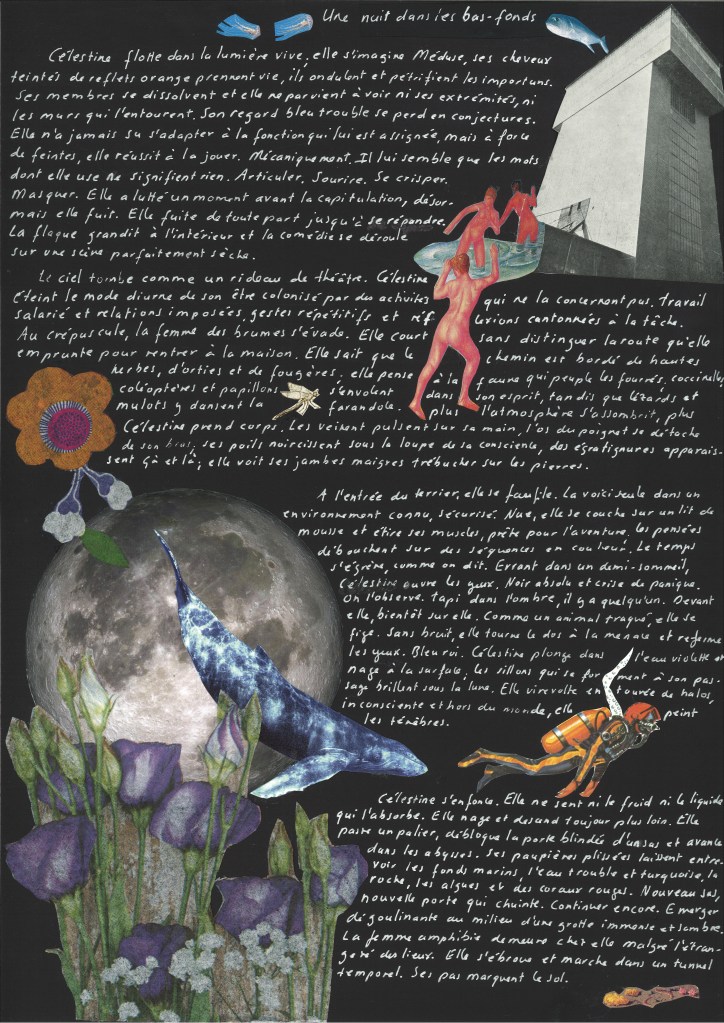 Une nuit dans les bas-fonds
Célestine flotte dans la lumière vive, elle s'imagine Méduse, ses cheveux
teintés de reflets orange prennent vie, ils ondulent et pétrifient les importuns.
Ses membres se dissolvent et elle ne parvient à voir ni ses extrémités, ni
les murs qui l'entourent. Son regard bleu trouble se perd en conjectures.
Elle n'a jamais su s'adapter à la fonction qui lui est assignée, mais à force
de feintes, elle réussit à la jouer. Mécaniquement. Il lui semble que les mots
dont elle use ne signifient rien. Articuler. Sourire. Se crisper.
Masquer. Elle a lutté un moment avant la capitulation, désor-
mais elle fuit. Elle fuite de toute part jusqu'à se répandre.
La flaque grandit à l'intérieur et la comédie se déroule
sur une scène parfaitement sèche.
Le ciel tombe comme un rideau de théâtre. Célestine
éteint le mode diurne de son être colonisé par des activités qui ne la concernent pas. Travail
salarié et relations imposées, gestes répétitifs et réflexions cantonnées à la tâche.
Au crépuscule, la femme des brumes s'évade. Elle court sans distinguer la route qu'elle
emprunte pour rentrer à la maison. Elle sait que le chemin est bordé de hautes
herbes, d'orties et de fougères. elle pense à la faune qui peuple les fourrés. coccinelles
coléoptères et papillons s'envolent dans son esprit, tandis que lézards et
mulots y dansent la farandole. plus l'atmosphère s'assombrit, plus
Célestine prend corps. Les veines pulsent sur sa main, l'os du poignet se détache
de son bras, ses poils noircissent sous la loupe de sa conscience, des égratignures apparais-
sent çà et là, elle voit ses jambes maigres trébucher sur les pierres.
A l'entrée du terrier, elle se faufile. La voici seule dans un
environnement connu, sécurisé. Nue, elle se couche sur un lit de
mousse et étire ses muscles, prête pour l'aventure. les pensées
débouchent sur des séquences en couleur. Le temps
s'égrène, comme on dit. Errant dans un demi-sommeil,
Célestine ouvre les yeux. Noir absolu et crise de panique.
On l'observe. tapi dans l'ombre, il y a quelqu'un. Devant
elle, bientôt sur elle. Comme un animal traqué, elle se
fige. Sans bruit, elle tourne le dos à la menace et referme
les yeux. Bleu roi. Célestine plonge dans l'eau violette et
nage à la surface, les sillons qui se forment à son pas-
sage brillent sous la lune. Elle virevolte entourée de halos,
inconsciente et hors du monde, elle peint
les ténèbres.
Célestine s'enfonce. Elle ne sent ni le froid ni le liquide
qui l'absorbe. Elle nage et descend toujours plus loin. Elle
passe un palier, débloque la porte blindée d'un sas et avance
dans les abysses. Ses paupières plissées laissent entre-
voir les fonds marins, l'eau trouble et turquoise, la
roche, les algues et des coraux rouges. Nouveau sas,
nouvelle porte qui chuinte. Continuer encore. Emerger
dégoulinante au milieu d'une grotte immense et sombre.
La femme amphibie demeure chez elle malgré l'étran-
geté des lieux. Elle s'ébroue et marche dans un tunnel
temporel. Ses pas marquent le sol.